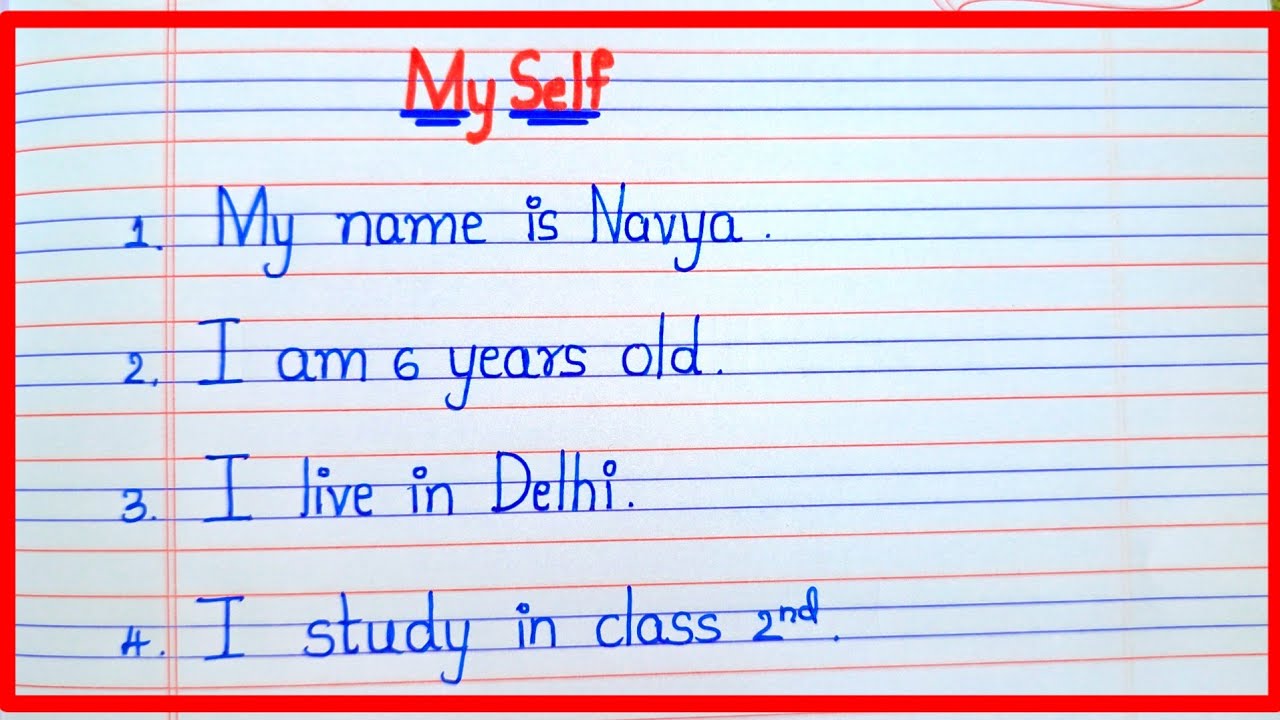 My Self
1. My name is Navya.
2. I am 6 years old.
3. I live in Delhi.
4. I study in class 2nd.